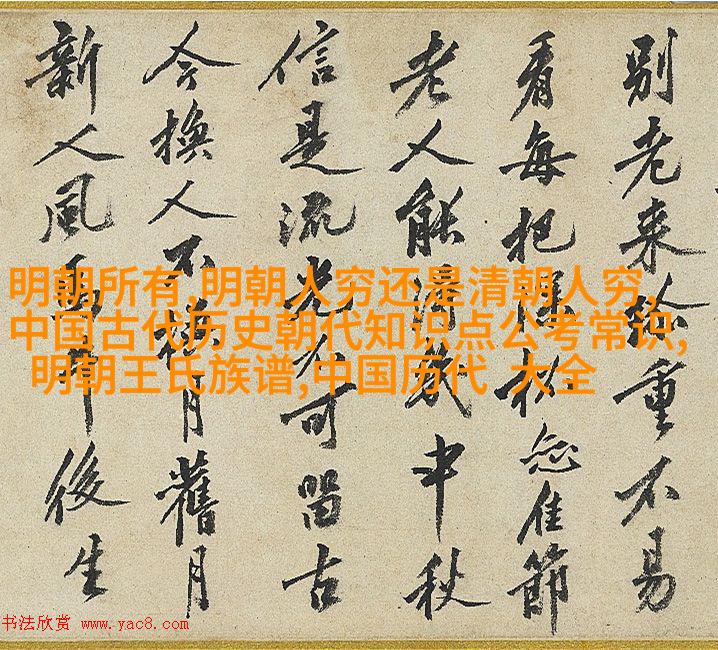 別老来重不易
看每把佳節
老人能得幾中秋
信是流光不可留古
今換人不換月舊月
新人風雨後生
明朝所有,明朝人穷还是清朝人穷,
中国古代历史朝代知识点公考常识,
明朝王氏族谱,中国历代 大全
书法欣赏 www.yac8.com